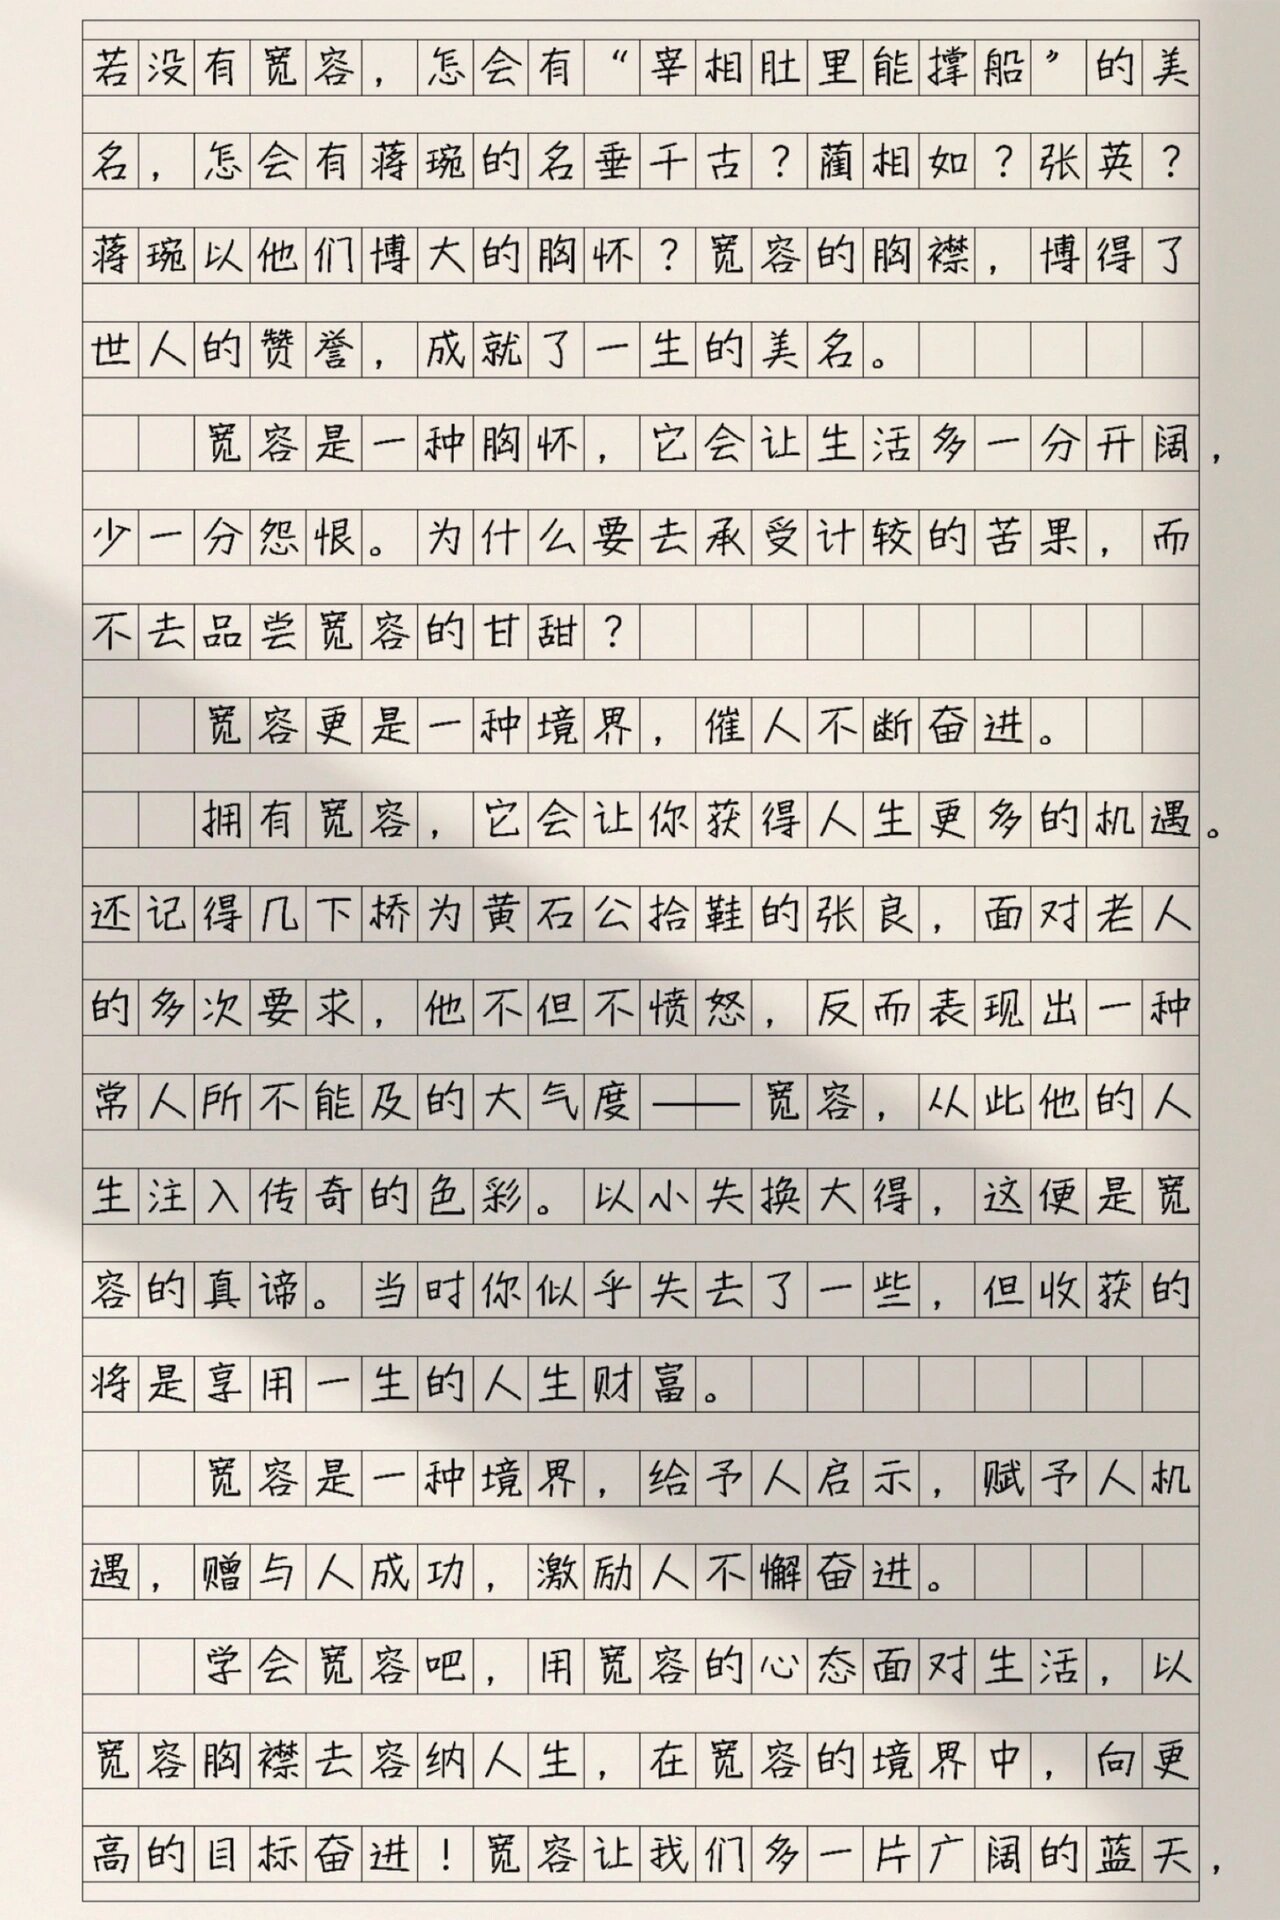 若没有宽容，怎会有“宰相肚里能撑船”的美
名，怎会有蒋琬的名垂千古？蔺相如？张英？
蒋琬以他们博大的胸怀？宽容的胸襟，博得了
世人的赞誉，成就了一生的美名。
宽容是一种胸怀，它会让生活多一分开阔，
少一分怨恨。为什么要去承受计较的苦果，而
不去品尝宽容的甘甜？
宽容更是一种境界，催人不断奋进。
拥有宽容，它会让你获得人生更多的机遇。
还记得几下桥为黄石公拾鞋的张良，面对老人
的多次要求，他不但不愤怒，反而表现出一种
常人所不能及的大气度——宽容，从此他的人
生注入传奇的色彩。以小失换大得，这便是宽
容的真谛。当时你似乎失去了一些，但收获的
将是享用一生的人生财富。
宽容是一种境界，给予人启示，赋予人机
遇，赠与人成功，激励人不懈奋进。
学会宽容吧，用宽容的心态面对生活，以
宽容胸襟去容纳人生，在宽容的境界中，向更
高的目标奋进！宽容让我们多一片广阔的蓝天，